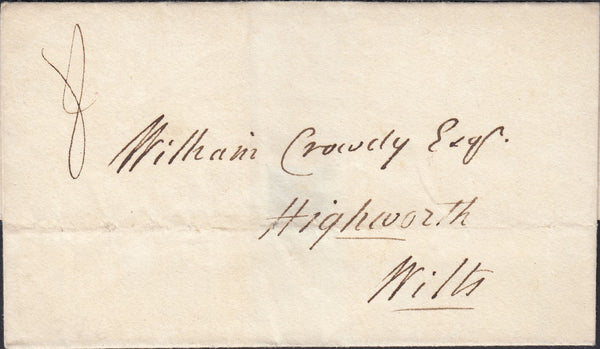 8
William Crowdy Esqr.
Highworth
Wilts